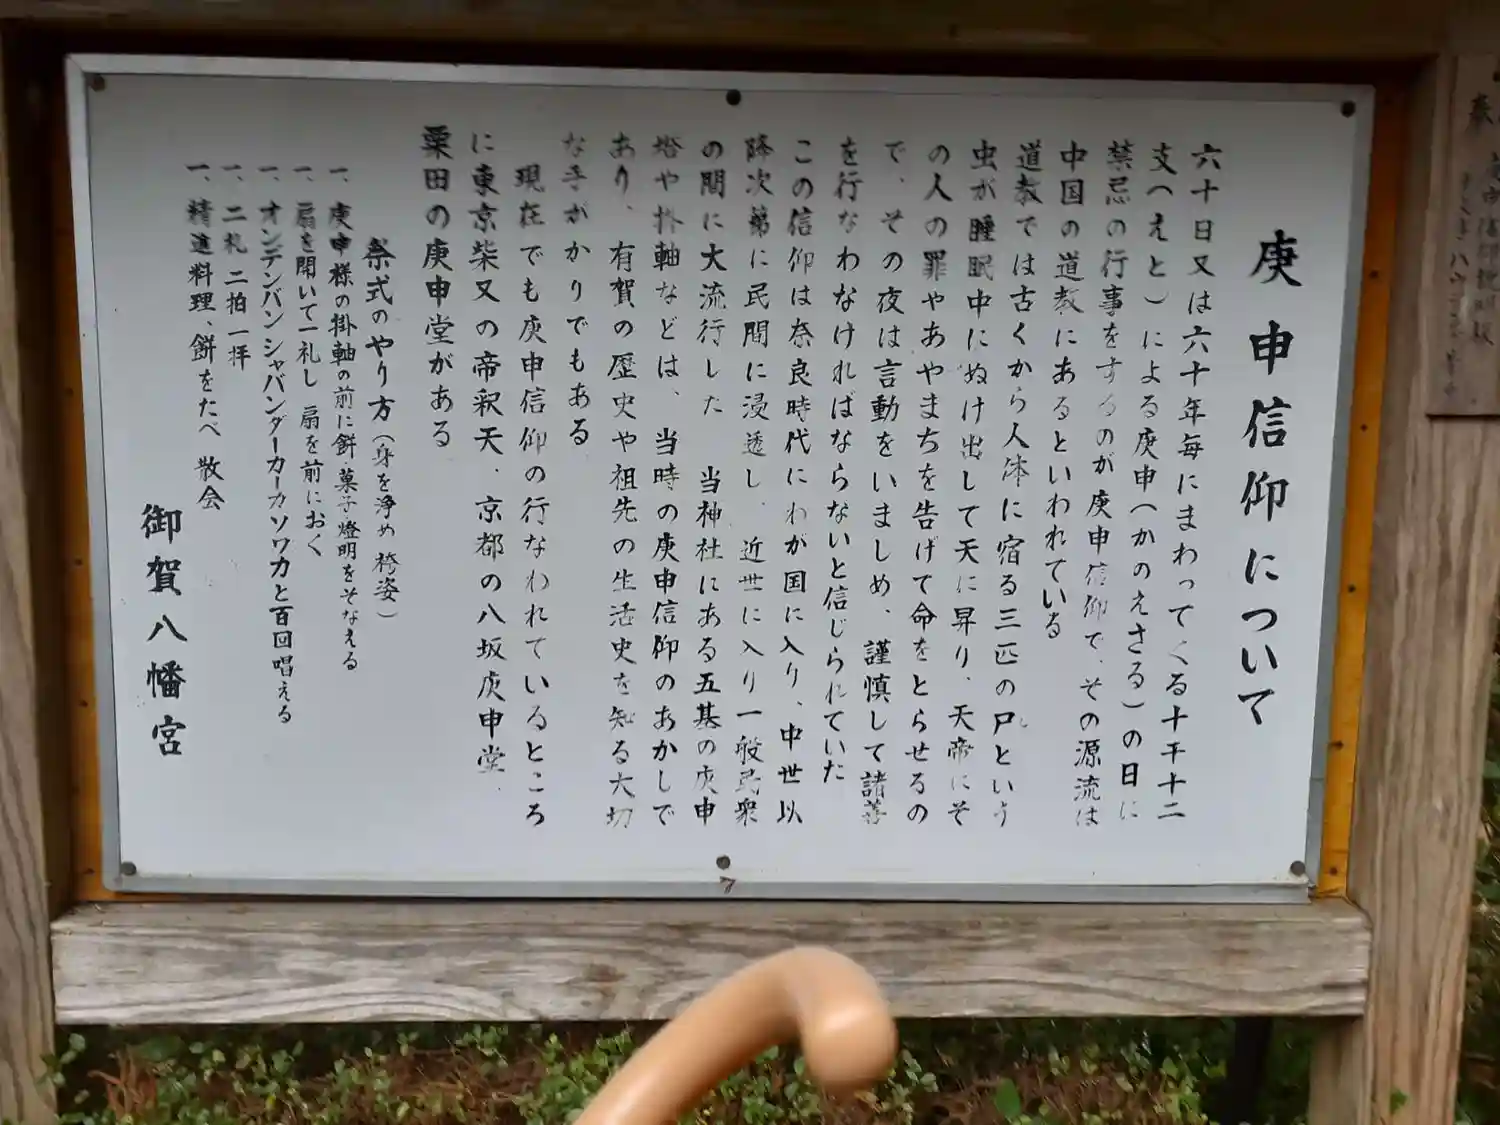 庚申信仰について
六十日又は六十年毎にまわってくる十干十二
支(えと)による庚申(かのえさる)の日に
禁忌の行事をするのが庚申信仰で、その源流は
中国の道教にあるといわれている
道教では古くから人体に宿る三匹の尸という
虫が睡眠中にぬけ出して天に昇り、天帝にそ
の人の罪やあやまちを告げて命をとらせるの
で、その夜は言動をいましめ、謹慎して諸善
を行なわなければならないと信じられていた
この信仰は奈良時代にわが国に入り、中世以
降次第に民間に浸透し、近世に入り一般民衆
の間に大流行した 当神社にある五基の庚申
塔や掛軸などは、当時の庚申信仰のあかしで
あり、有賀の歴史や祖先の生活史を知る大切
な手がかりでもある
現在でも庚申信仰の行なわれているところ
に東京柴又の帝釈天、京都の八坂庚申堂、
粟田の庚申堂がある
祭式のやり方(身を浄め 袴姿)
一、庚申様の掛軸の前に餅 菓子 燈明をそなえる
一、扇を開いて一礼し 扇を前におく
一、オンデンバン シャバンダーカーカソワカと百回唱える
一、二礼 二拍 一拝
一、精進料理、餅をたべ 散会
御賀八幡宮
奉
7